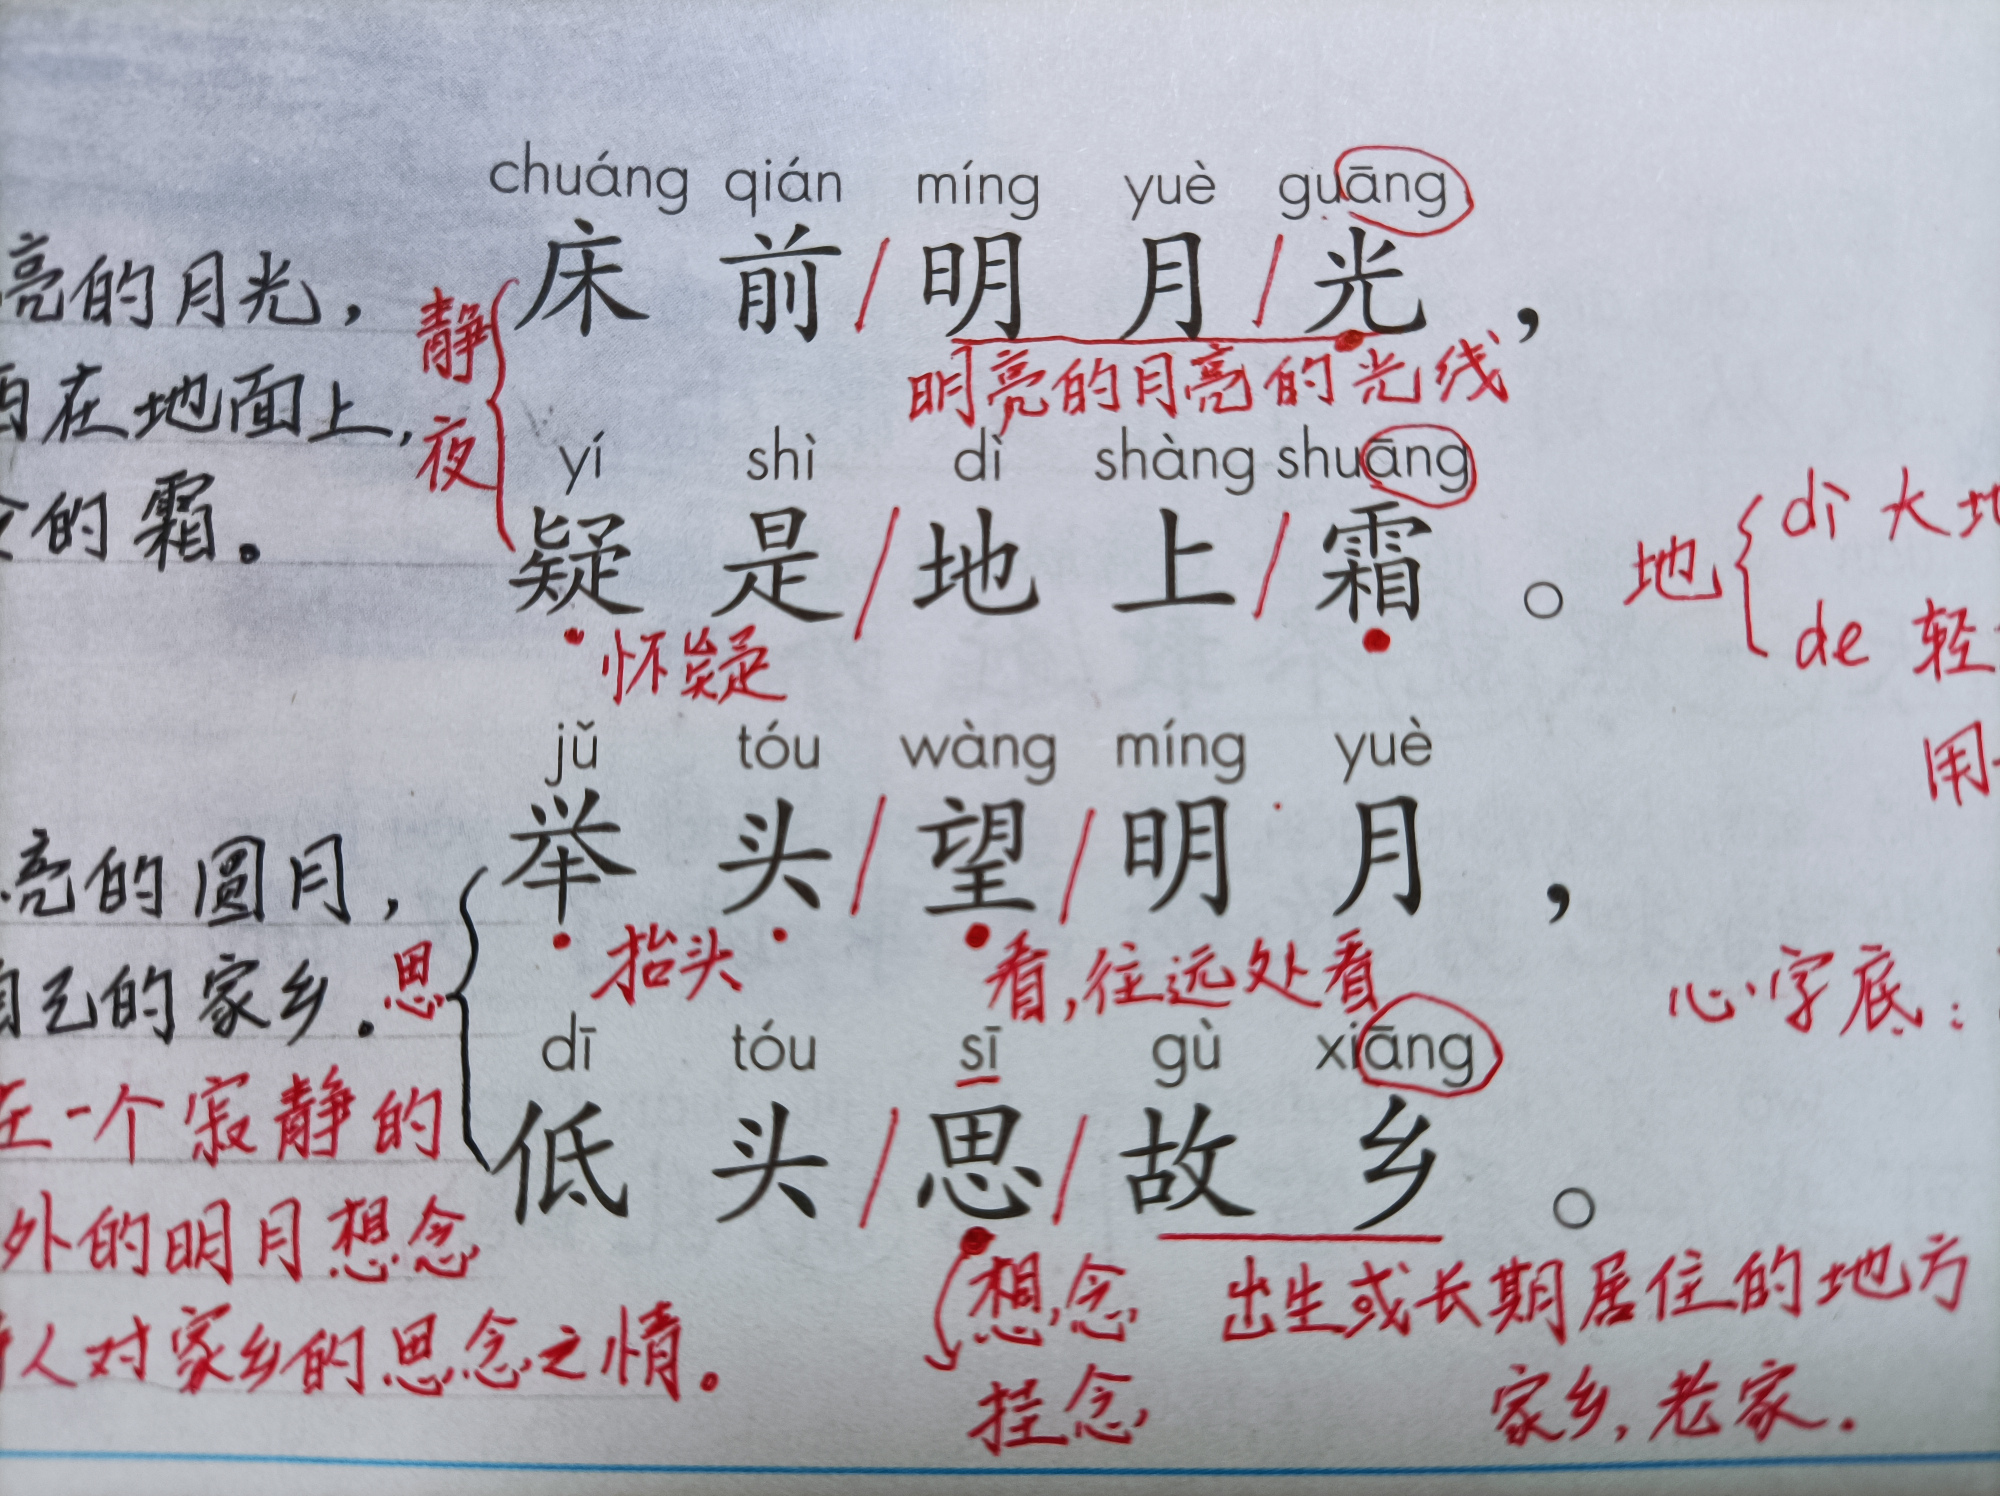 chuáng qián míng yuè guāng
床前/明月/光，
亮的月光，
静夜
明亮的月亮的光线
在地面上，
yí shì dì shàng shuāng
疑是/地上/霜。
的霜。
地 { dì 大地
de 轻
怀疑
用
jǔ tóu wàng míng yuè
举头/望/明月，
亮的圆月，
抬头 看，往远处看
自己的家乡。
思
心字底：
dī tóu sī gù xiāng
低头/思/故乡。
在一个寂静的
外的明月想念
人对家乡的思念之情。
想念 出生或长期居住的地方
挂念 家乡，老家．